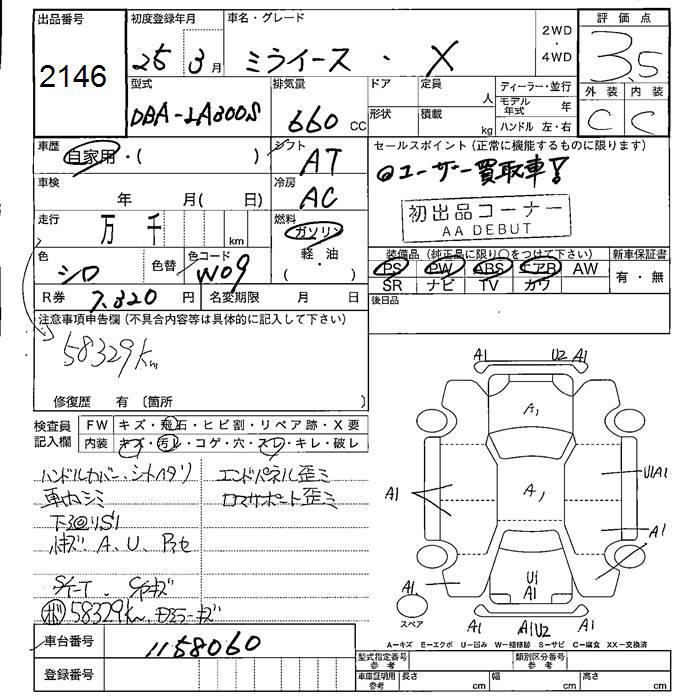 出品番号
2146
初度登録年月
25 3月
車名・グレード
ミライース・X
2WD
・
4WD
評価点
3.5
外装 内装
C C
型式
DBA-LA300S
排気量
660 CC
ドア
形状
定員 人
積載 kg
ディーラー・並行
モデル年式 年
ハンドル 左・右
車歴
自家用・( )
シフト
AT
セールスポイント(正常に機能するものに限ります)
◎ユーザー買取車!
初出品コーナー
AA DEBUT
車検
年 月( 日)
冷房
AC
走行
万 千 km
燃料
ガソリン
軽・油
( )
色
シロ
色替
色コード
W09
装備品(純正品に限り○をつけて下さい)
PS PW ABS エアB AW
SR ナビ TV カワ
新車保証書
有・無
R券 7,320 円
名変期限 月 日
後日品
注意事項申告欄(不具合内容等は具体的に記入して下さい)
58329km
修復歴 有〔箇所 〕
検査員
記入欄
FW キズ・飛石・ヒビ割・リペア跡・X要
内装 キズ・汚レ・コゲ・穴・スレ・キレ・破レ
ハンドルカバー、シートヘタリ
エンドパネル歪ミ
コアサポート歪ミ
A、U
58329km
車台番号
1158060
登録番号
A1 U2 A1
A1
A1
A1
U1A1
A1
A1
U1
A1
A1 A1U2 A1
スペア
A-キズ E-エクボ U-凹み W-補修跡 S-サビ C-腐食 XX-交換済
型式指定番号
参考
類別区分番号
参考
車庫証明用
参考
長さ cm
幅 cm
高さ cm